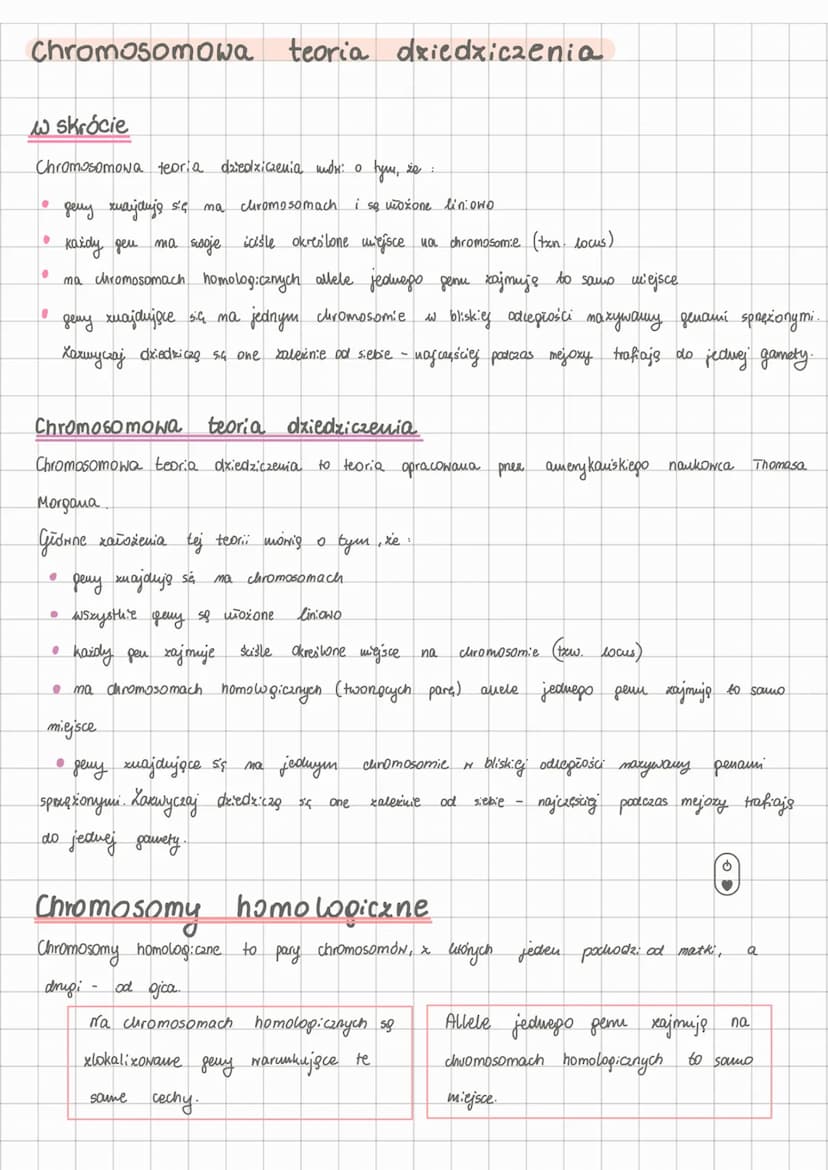 Chromosomowa teoria dziedziczenia
w skrócie
Chromosomowa teoria dziedziczenia mówi o tym, że :
• geny znajdują się na chromosomach i są ułożone liniowo
• każdy gen ma swoje ściśle określone miejsce na chromosomie (tzn. locus)
• na chromosomach homologicznych allele jednego genu zajmują to samo miejsce
• geny znajdujące się na jednym chromosomie w bliskiej odległości nazywamy genami sprzężonymi.
Zazwyczaj dziedziczą są one zależnie od siebie - najczęściej podczas mejozy trafiają do jednej gamety.
Chromosomowa teoria dziedziczenia
Chromosomowa teoria dziedziczenia to teoria opracowana przez amerykańskiego naukowca Thomasa
Morgana.
Główne założenia tej teorii mówią o tym, że :
• geny znajdują są na chromosomach
• wszystkie geny są ułożone liniowo
• każdy gen zajmuje ściśle określone miejsce na chromosomie (tzw. locus)
• na chromosomach homologicznych (tworzących parę) allele jednego genu zajmują to samo
miejsce
• geny znajdujące się na jednym chromosomie w bliskiej odległości nazywamy genami
sprzężonymi. Zazwyczaj dziedziczą są one zależnie od siebie - najczęściej podczas mejozy trafiają
do jednej gamety.
Chromosomy homologiczne
Chromosomy homologiczne to pary chromosomów, z których jeden pochodzi od matki, a
drugi - od ojca.
Na chromosomach homologicznych są
zlokalizowane geny warunkujące te
same cechy.
Allele jednego genu zajmują na
chromosomach homologicznych to samo
miejsce.